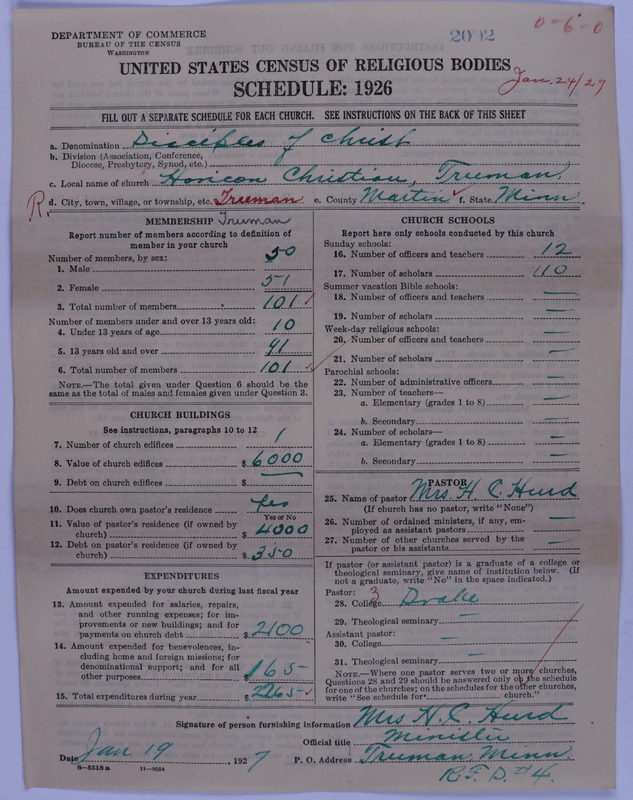 DEPARTMENT OF COMMERCE
BUREAU OF THE CENSUS
WASHINGTON
2092
0-6-0
UNITED STATES CENSUS OF RELIGIOUS BODIES
Jan. 24/27
SCHEDULE: 1926
FILL OUT A SEPARATE SCHEDULE FOR EACH CHURCH. SEE INSTRUCTIONS ON THE BACK OF THIS SHEET
a. Denomination Disciples of Christ
b. Division (Association, Conference,
Diocese, Presbytery, Synod, etc.)
c. Local name of church Horicon Christian, Truman
R. d. City, town, village, or township, etc. Truman e. County Martin f. State Minn
MEMBERSHIP Truman
Report number of members according to definition of
member in your church
Number of members, by sex:
1. Male 50
2. Female 51
3. Total number of members 101
Number of members under and over 13 years old:
4. Under 13 years of age 10
5. 13 years old and over 91
6. Total number of members 101
NOTE.—The total given under Question 6 should be the
same as the total of males and females given under Question 3.
CHURCH BUILDINGS
See instructions, paragraphs 10 to 12
7. Number of church edifices 1
8. Value of church edifices $ 6000
9. Debt on church edifices $ —
10. Does church own pastor's residence yes
Yes or No
11. Value of pastor's residence (if owned by
church) $ 4000
12. Debt on pastor's residence (if owned by
church) $ 350
EXPENDITURES
Amount expended by your church during last fiscal year
13. Amount expended for salaries, repairs,
and other running expenses; for im-
provements or new buildings; and for
payments on church debt $ 2100
14. Amount expended for benevolences, in-
cluding home and foreign missions; for
denominational support; and for all
other purposes $ 165-
15. Total expenditures during year $ 2265-
CHURCH SCHOOLS
Report here only schools conducted by this church
Sunday schools:
16. Number of officers and teachers 12
17. Number of scholars 110
Summer vacation Bible schools:
18. Number of officers and teachers —
19. Number of scholars —
Week-day religious schools:
20. Number of officers and teachers —
21. Number of scholars —
Parochial schools:
22. Number of administrative officers —
23. Number of teachers—
a. Elementary (grades 1 to 8) —
b. Secondary —
24. Number of scholars—
a. Elementary (grades 1 to 8) —
b. Secondary —
PASTOR
25. Name of pastor Mrs H. C. Hurd
(If church has no pastor, write "None")
26. Number of ordained ministers, if any, em-
ployed as assistant pastors —
27. Number of other churches served by the
pastor or his assistants —
If pastor (or assistant pastor) is a graduate of a college or
theological seminary, give name of institution below. (If
not a graduate, write "No" in the space indicated.)
Pastor: 3
28. College Drake
29. Theological seminary —
Assistant pastor:
30. College —
31. Theological seminary —
NOTE.—Where one pastor serves two or more churches,
Questions 28 and 29 should be answered only on the schedule
for one of the churches; on the schedules for the other churches,
write "See schedule for church."
Signature of person furnishing information Mrs H. C. Hurd
Official title Minister
Date Jan. 19, 1927 P. O. Address Truman, Minn.
8—5518 a 11—9554
R.F.D. #4.